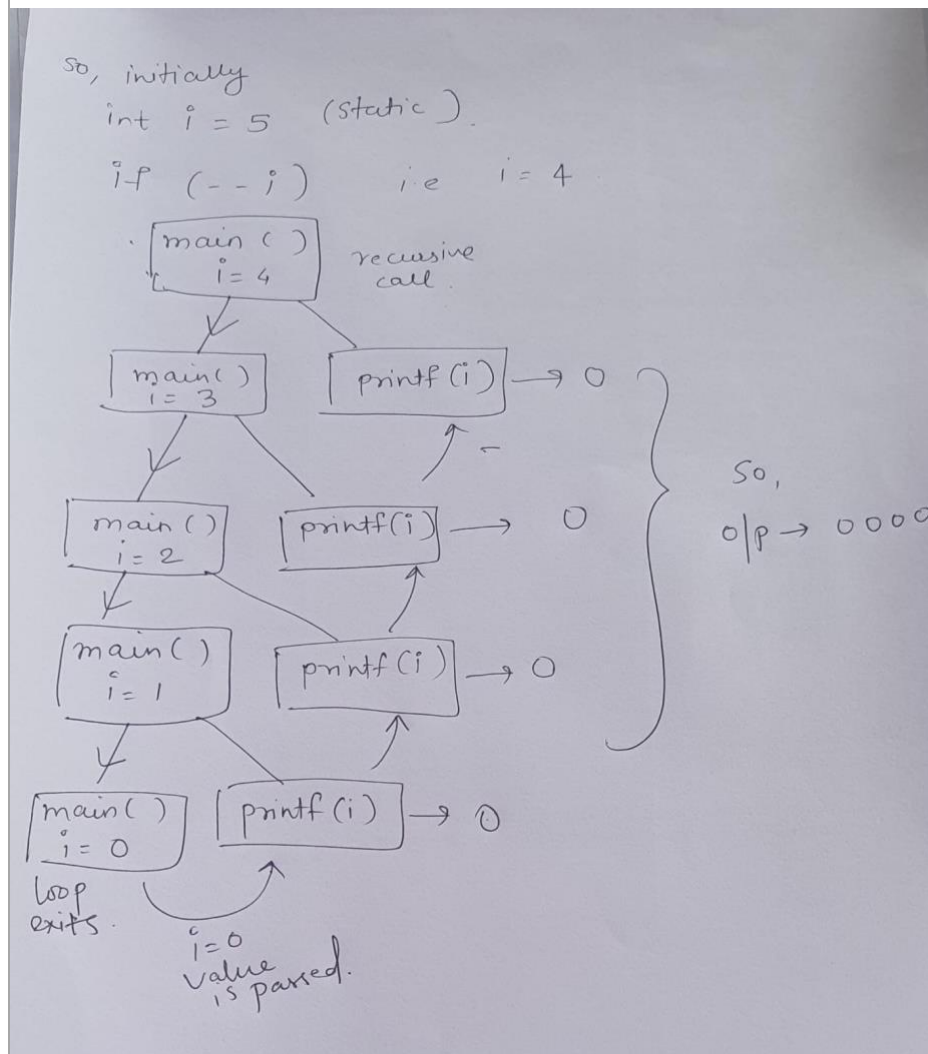 so, initially
int i = 5 (static).
if (--i) i.e i = 4
main ()
i = 4
recursive
call.
main()
i = 3
printf (i) → 0
main ()
i = 2
printf(i) → 0
So,
o/p → 0000
main ()
i = 1
printf (i) → 0
main ()
i = 0
printf (i) → 0
loop
exits.
i=0
value
is passed.